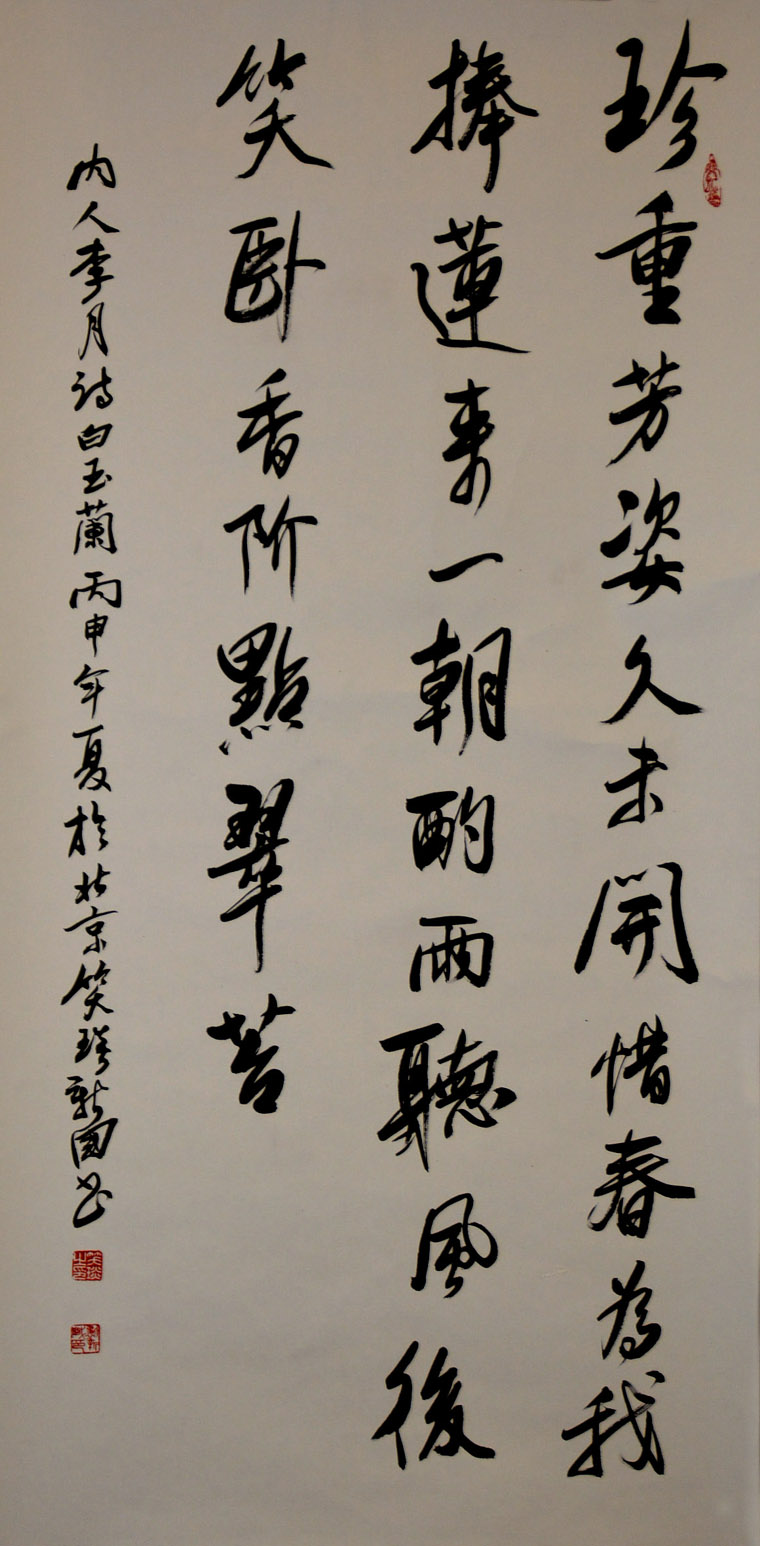 珍重芳姿久未開惜春為我
捧蓮來一朝酌雨聽風後
笑臥香階點翠苔
內人李月詩白玉蘭丙申年夏於北京笑琰新國書